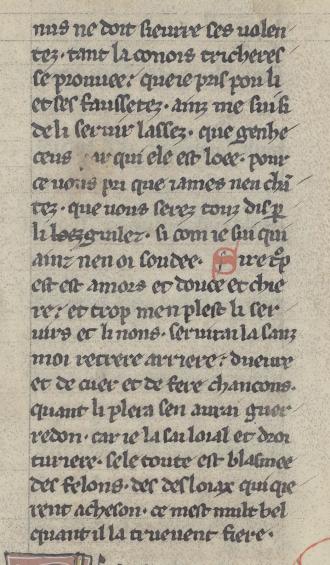 nus ne doit sieurre ses uolen
tez. tant la conois tricheres
se prouuee. que ie pris pou li
et ses faussetez. ainz me sui si
de li seruir lassez. que ge nhe
ceus par qui ele est loee. pour
ce uous pri que iames nen chā
tez. que uous serez touz desp
li guilez. si com ie sui qui
ainz nen oi soudee. Sire trop
est amors et douce et chie
re. et trop men plest li ser
uirs et li nons. seruirai la sanz
moi retrere arriere. dueure
et de cuer et de fere chancons.
quant li plera sen aurai guer
redon. car ie la sai loial et droi
turiere. sele toute est blasmee
des felons. des desloiax qui que
rent acheson. ce mest mult bel
quant il la treuuent fiere.